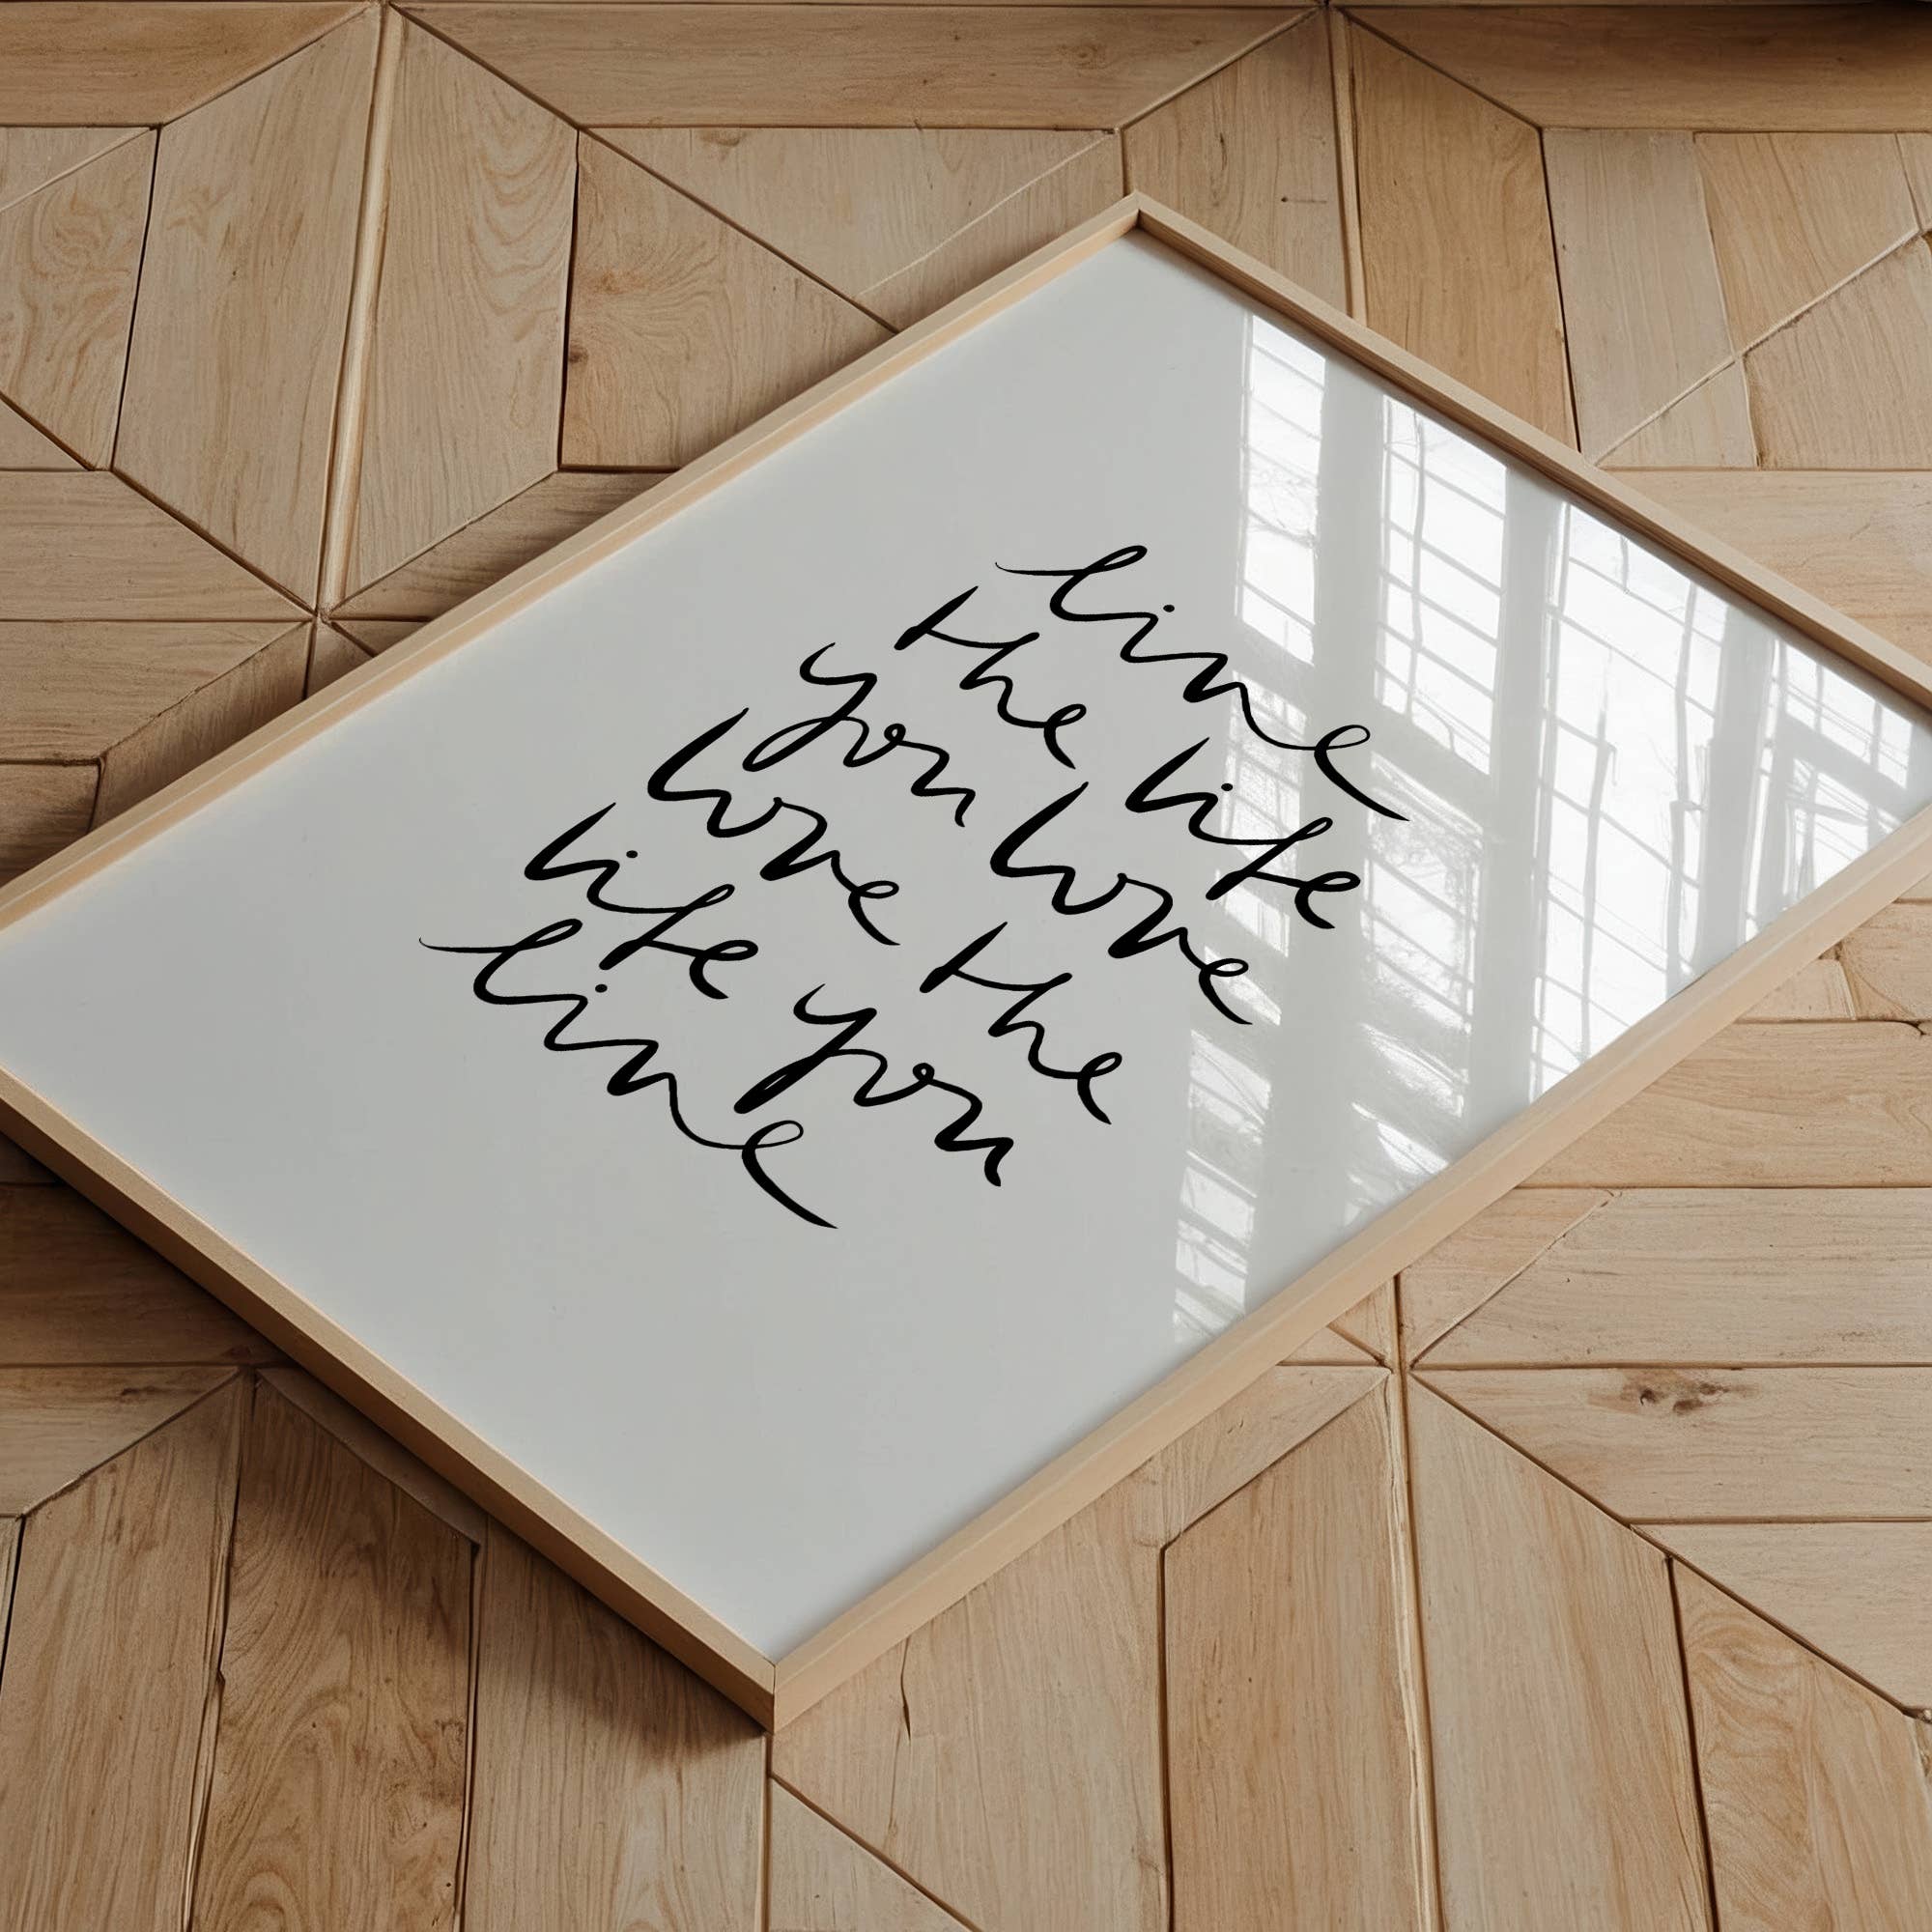 live
the life
you love
love the
life you
live